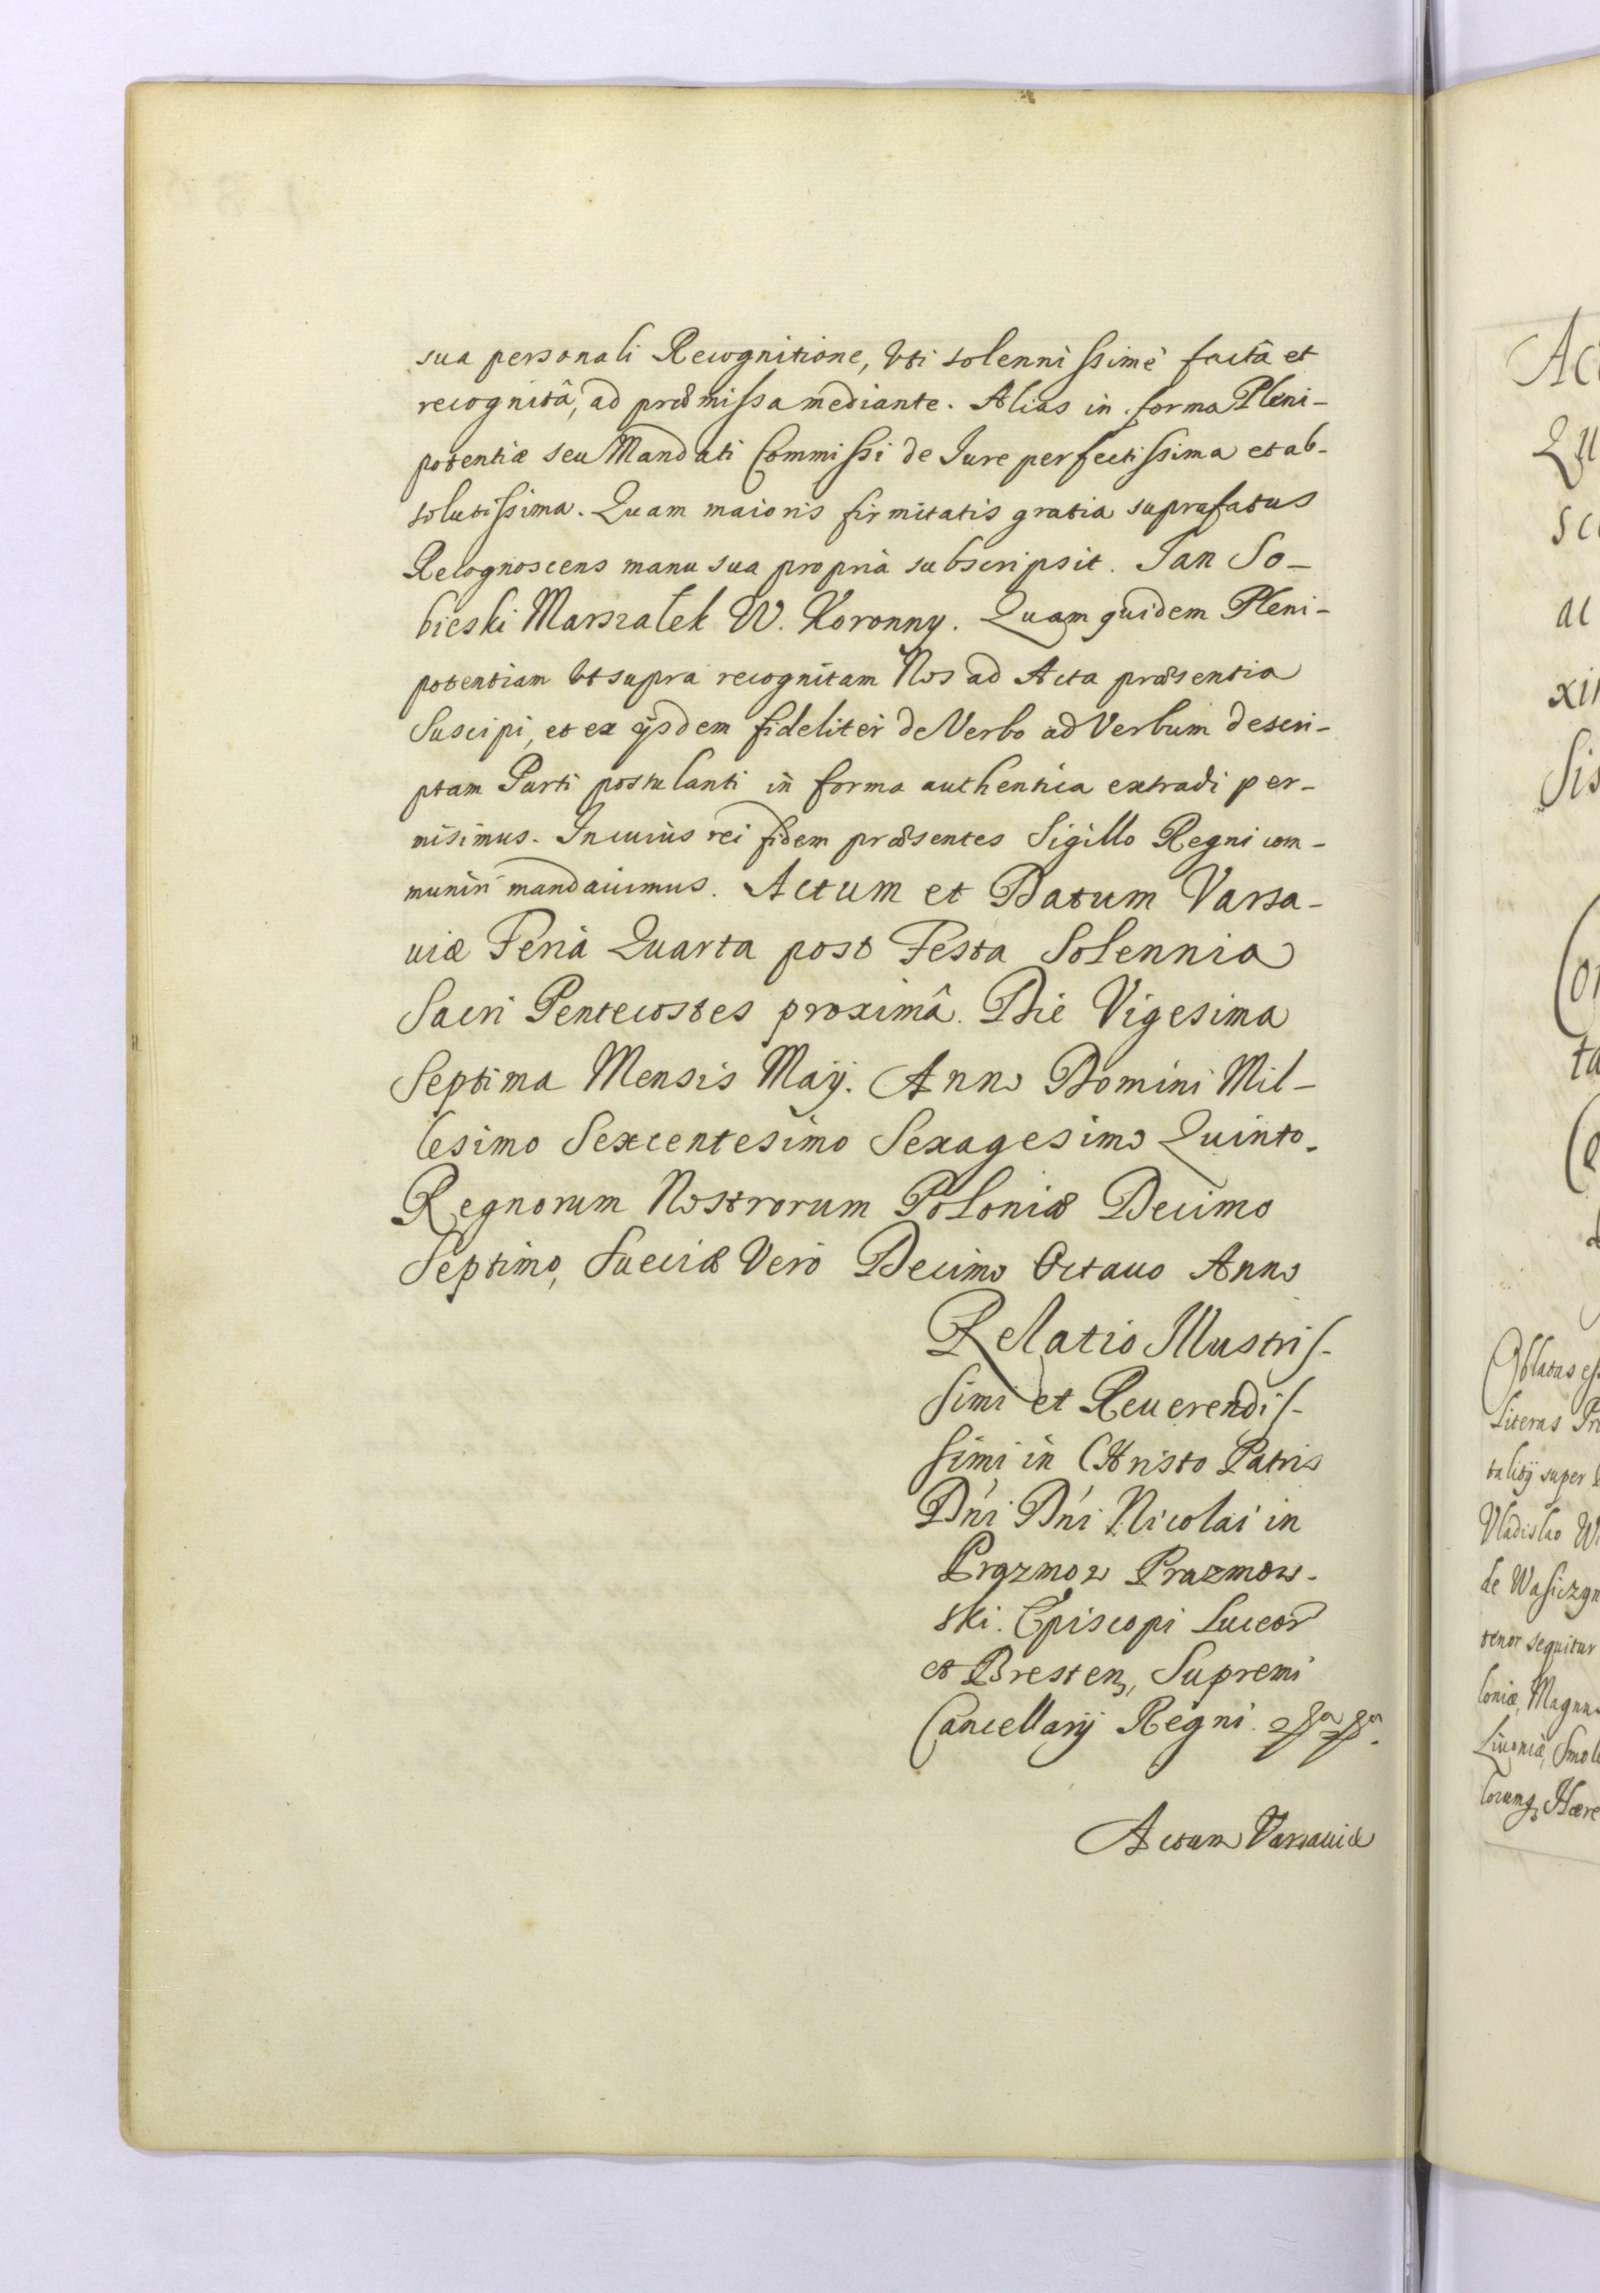 sua personali Recognitione, Vti solennissimè factâ et
recognitâ, ad præmissa mediante. Alias in forma Pleni-
potentiæ seu Mandati Commissi de Iure perfectissima et ab-
solutissima. Quam maioris firmitatis gratia suprafatus
Recognoscens manu sua propria subscripsit. Jan So-
bieski Marszałek W. Koronny. Quam quidem Pleni-
potentiam Vt supra recognitam Nos ad Acta præsentia
Suscipi, et ex ijsdem fideliter de Verbo ad Verbum descri-
ptam Parti postulanti in forma authentica extradi per-
misimus. In cuius rei fidem præsentes Sigillo Regni com-
muniri mandauimus. Actum et Datum Varsa-
uiæ Feria Quarta post Festa Solennia
Sacri Pentecostes proximâ. Die Vigesima
Septima Mensis Maij. Anno Domini Mil-
lesimo Sexcentesimo Sexagesimo Quinto.
Regnorum Nostrorum Poloniæ Decimo
Septimo, Sueciæ Verò Decimo Octauo Anno
Relatio Illustris-
simi et Reuerendis-
simi in Christo Patris
Dñi Dñi Nicolai in
Prazmow Prazmow-
ski. Episcopi Luceor
et Bresten, Supremi
Cancellarij Regni.
Actum Varsauiæ
Oblatas
Literas
talitij super
Vladislao
de
tenor sequitur
loniæ, Magnus
Liuoniæ,